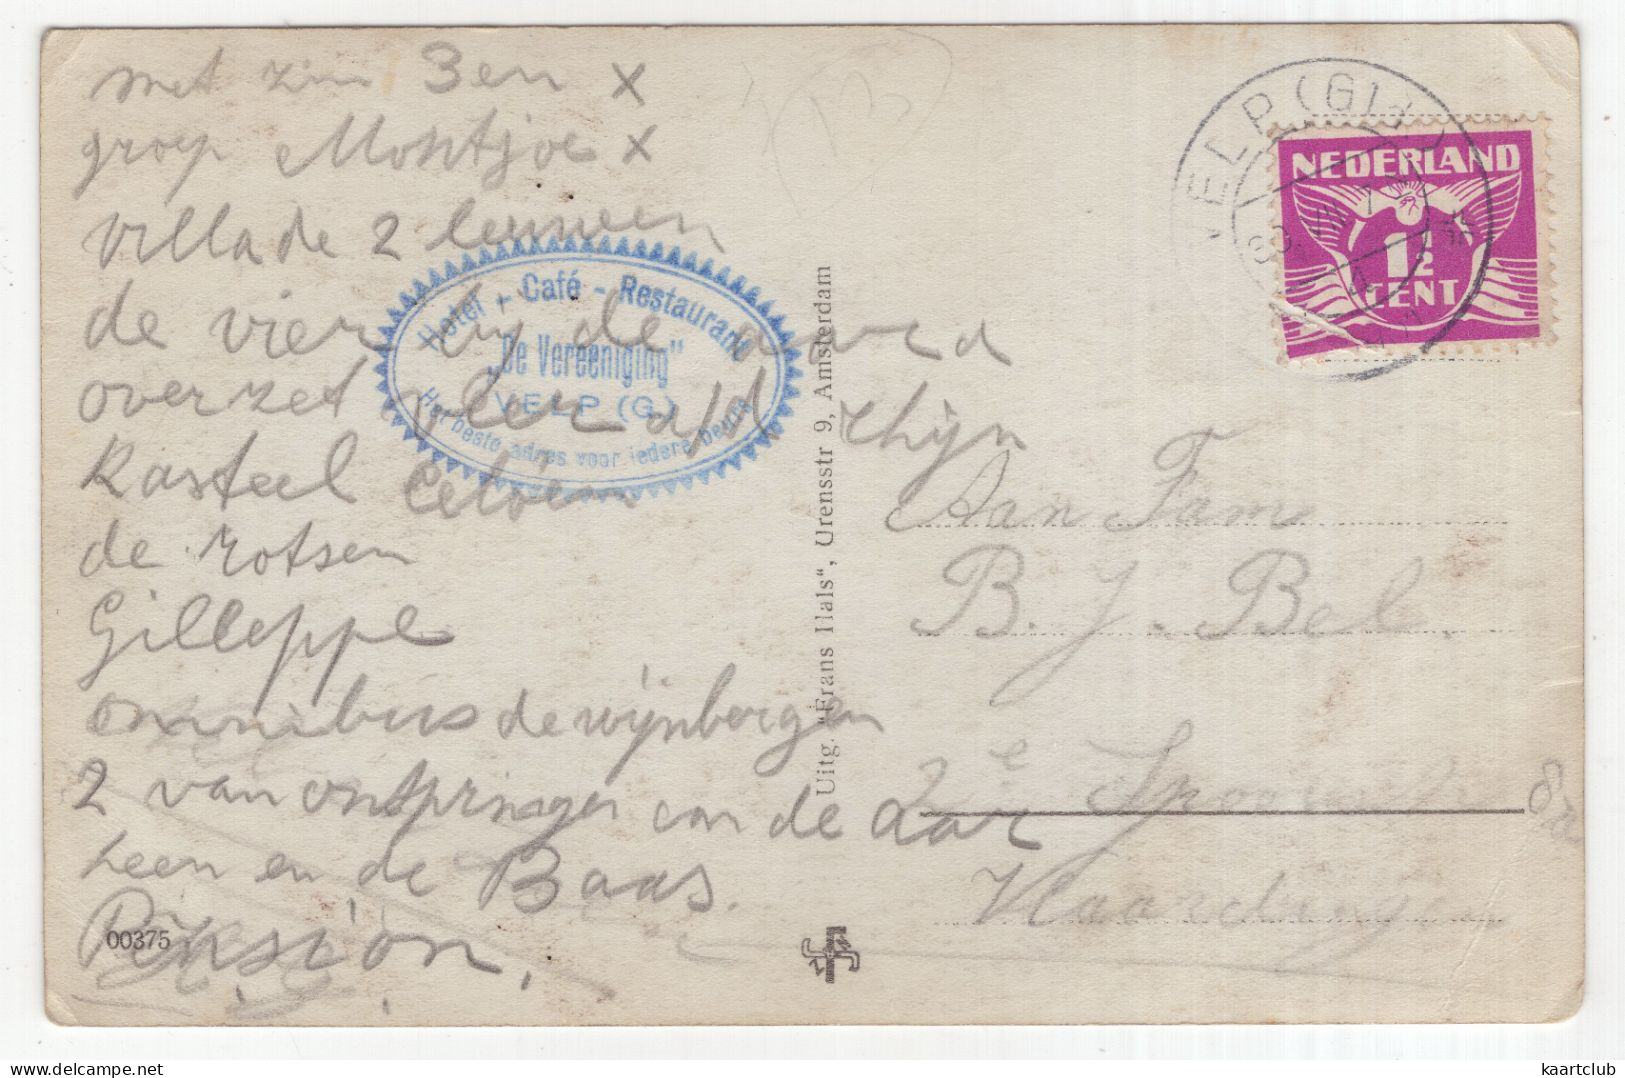 met zim 3 en x
groep Montjoe x
villa de 2 leuwen
de vier bij de
overzet veer a/d rhijn
Kasteel
de rotsen
Gilleppe
omnibus de wijnbergen
2 van ontspringen van de aar
heen en de Baas.
Pension.
00375
Hotel - Café - Restaurant
"De Vereeniging"
VELP (G.)
Het beste adres voor iedere beurs
Uitg. "Frans Hals", Urensstr 9, Amsterdam
VELP (G)
NEDERLAND
1½
CENT
Aan Fam
B. J. Bel
2e
Vlaardingen
8a
kaartclub